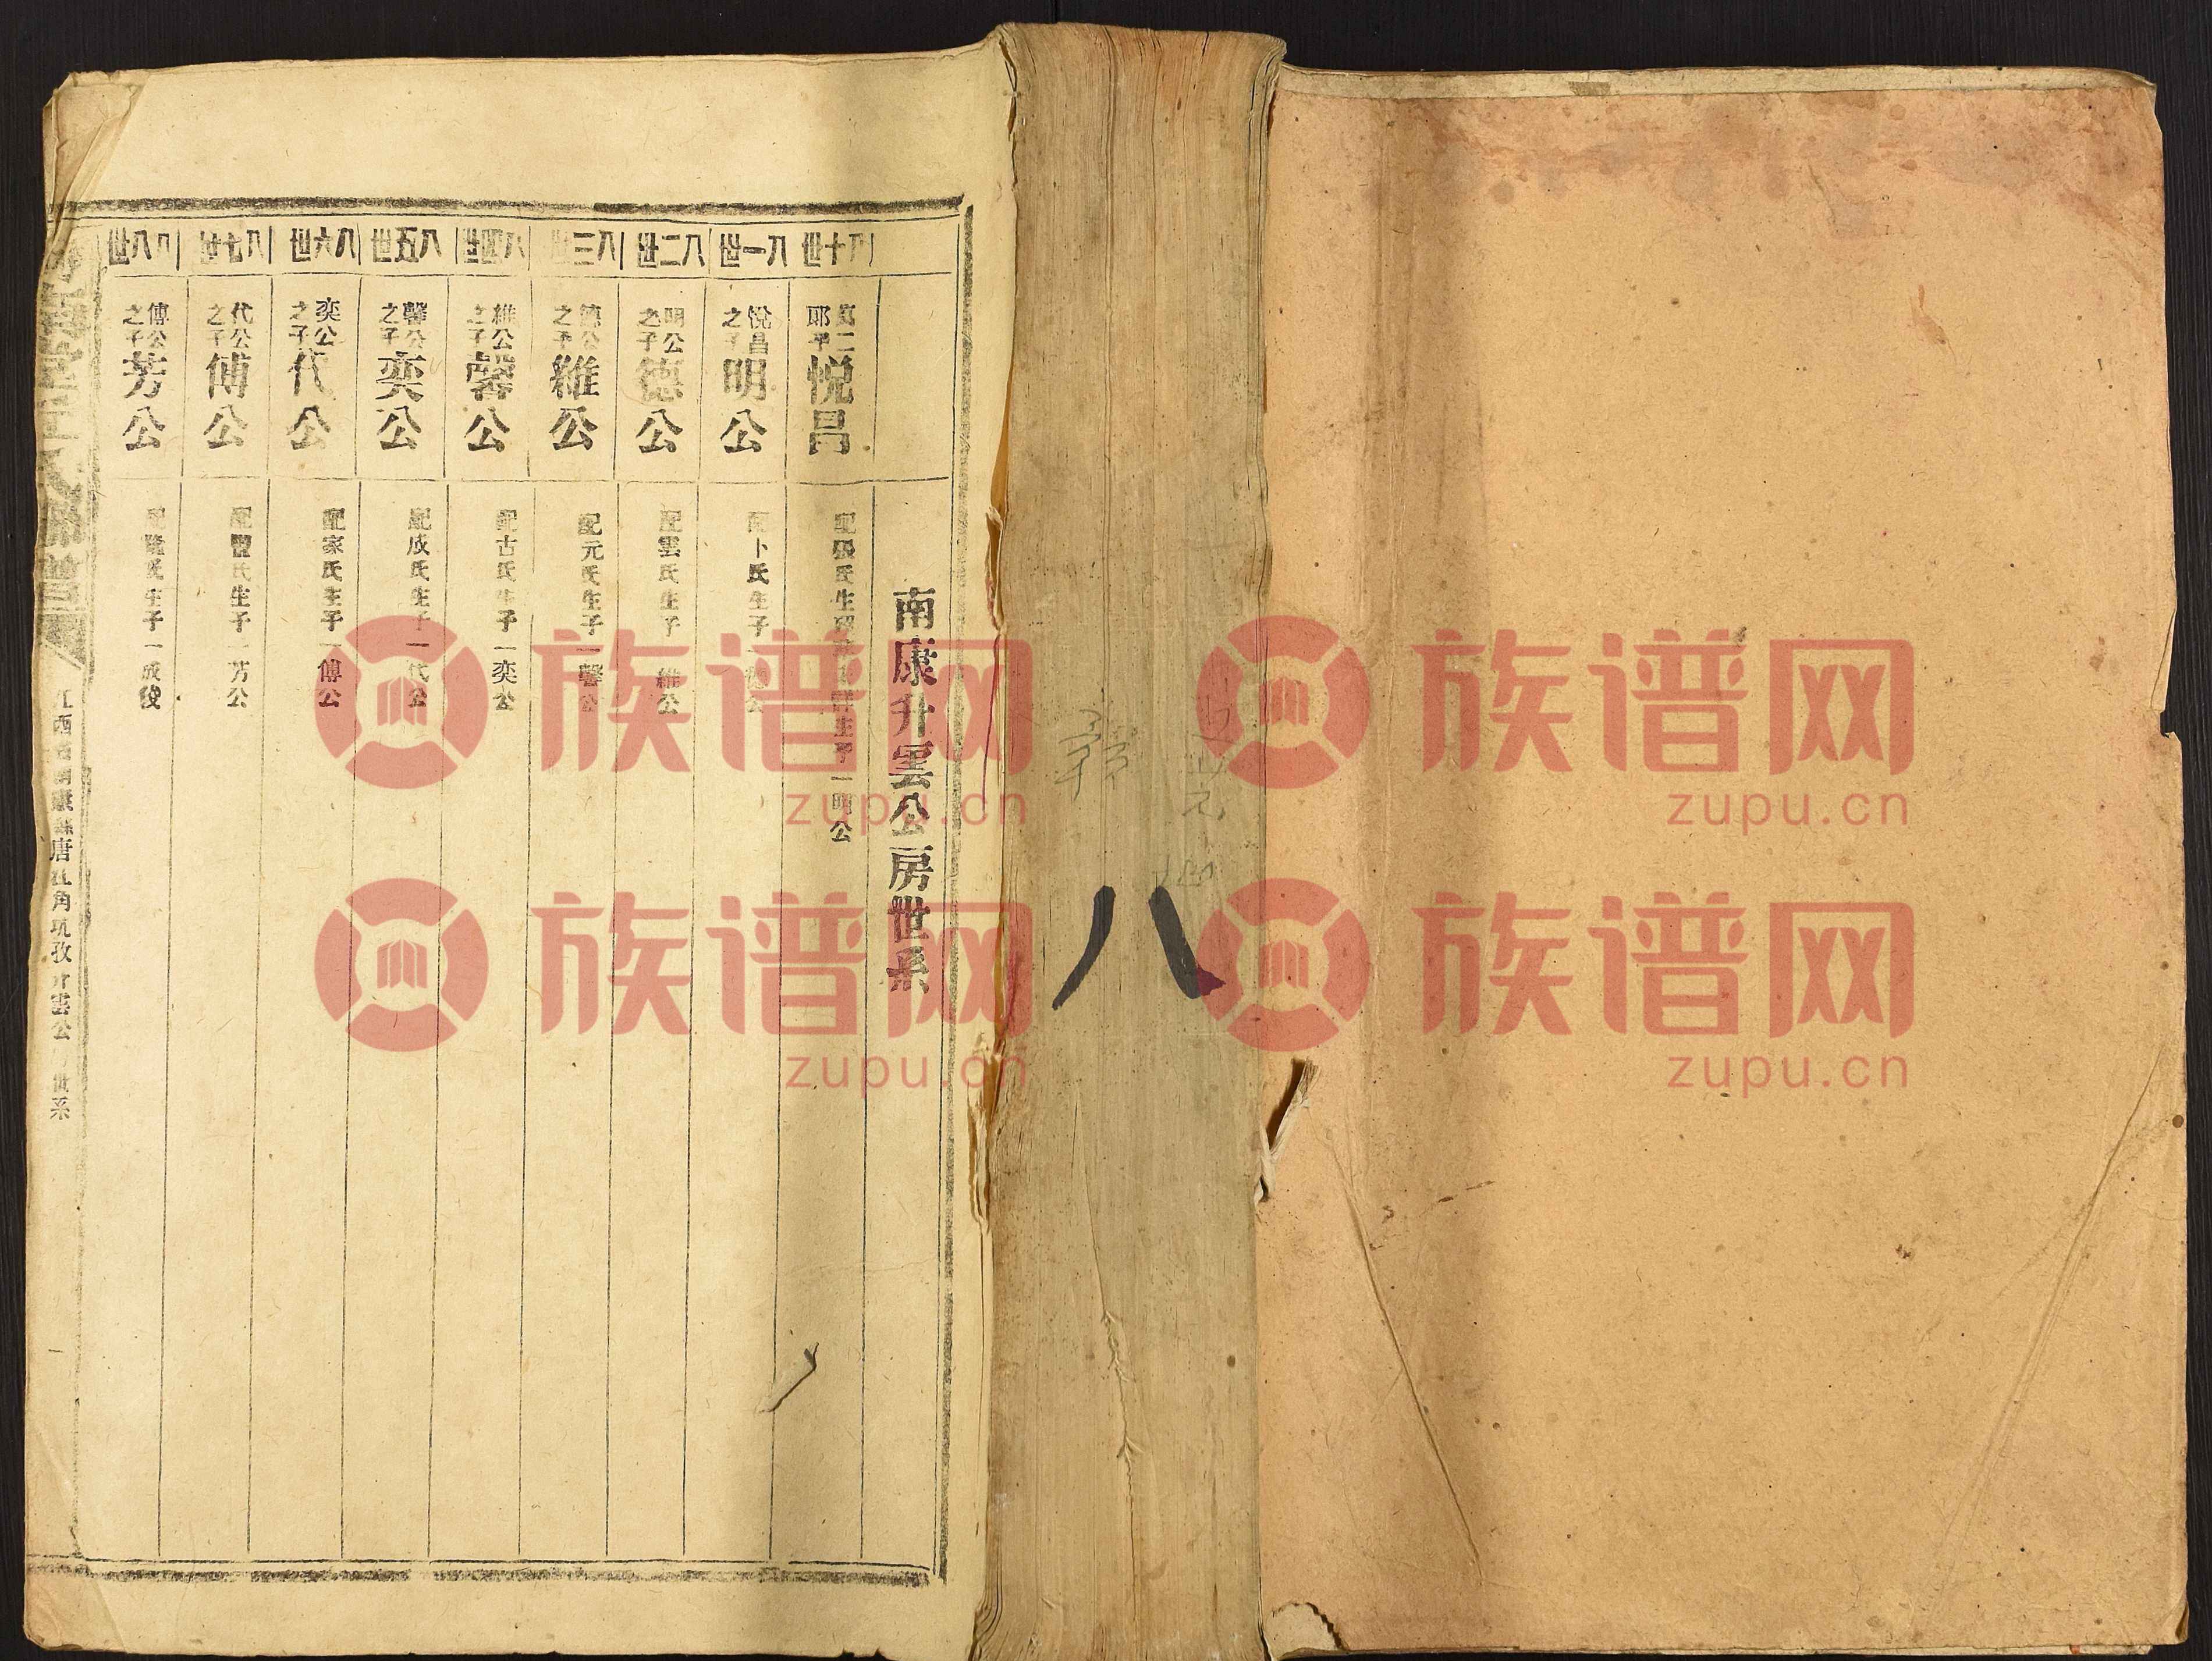 南康升雲公房世系
八十世
郎平
悦昌
配張氏生
生子一明公
八一世
悅昌之子
明公
配卜氏生子一
八二世
明公之子
德公
配雲氏生子一維公
八三世
德公之子
維公
配元氏生子一馨公
八四世
維公之子
馨公
配古氏生子一奕公
八五世
馨公之子
奕公
配成氏生子一代公
八六世
奕公之子
代公
配家氏生子一傅公
八七世
代公之子
傅公
配氏生子一芳公
八八世
傅公之子
芳公
配隆氏生子一成俊
江西省南康縣唐江角坑孜升雲公世系
八
族谱网
zupu.cn
族谱网
zupu.cn
族谱网
zupu.cn
族谱网
zupu.cn